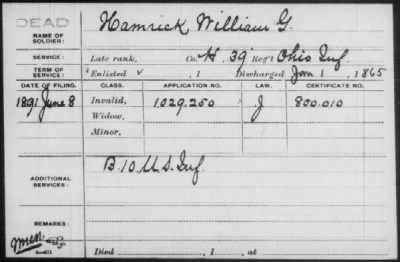 DEAD
NAME OF SOLDIER: Hamrick William G.
SERVICE: Late rank, Co. H, 39 Reg't Ohio Inf.
TERM OF SERVICE: Enlisted ✓ , 1 Discharged Jan 1 , 1865
DATE OF FILING. CLASS. APPLICATION NO. LAW. CERTIFICATE NO.
1891 June 8 Invalid, 1,029,250 J 800.010
Widow,
Minor,
ADDITIONAL SERVICES: B. 10 U.S. Inf.
REMARKS:
Died , 1 , at